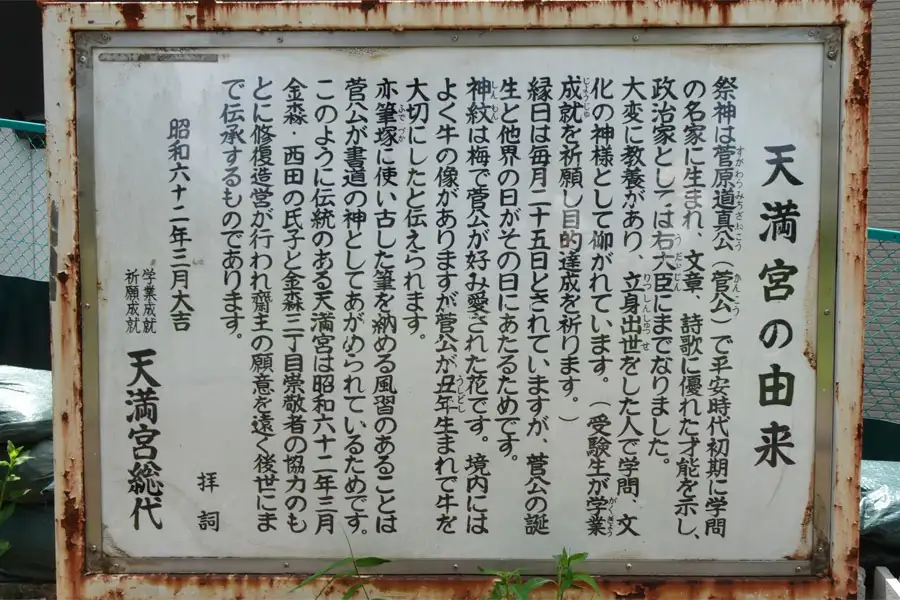 天満宮の由来
祭神は菅原道真公（菅公）で平安時代初期に学問
の名家に生まれ、文章、詩歌に優れた才能を示し、
政治家としては右大臣にまでなりました。
大変に教養があり、立身出世をした人で学問、文
化の神様として仰がれています。（受験生が学業
成就を祈願し目的達成を祈ります。）
縁日は毎月二十五日とされていますが、菅公の誕
生と他界の日がその日にあたるためです。
神紋は梅で菅公が好み愛された花です。境内には
よく牛の像がありますが菅公が丑年生まれで牛を
大切にしたと伝えられます。
亦筆塚に使い古した筆を納める風習のあることは
菅公が書道の神としてあがめられているためです。
このように伝統のある天満宮は昭和六十二年三月
金森・西田の氏子と金森二丁目崇敬者の協力のも
とに修復造営が行われ齋主の願意を遠く後世にま
で伝承するものであります。
拝詞
昭和六十二年三月大吉
学業成就
祈願成就
天満宮総代